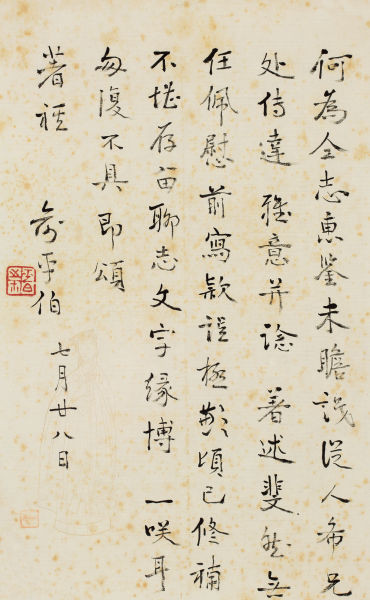 何為全志惠鉴未瞻識從人希兄
处传達雅意并諗著述斐然無
任佩慰前寫款误極歉頃已修補
不堪存留聊志文字缘博一咲耳
匆復不具即頌
著祺
俞平伯
七月廿八日